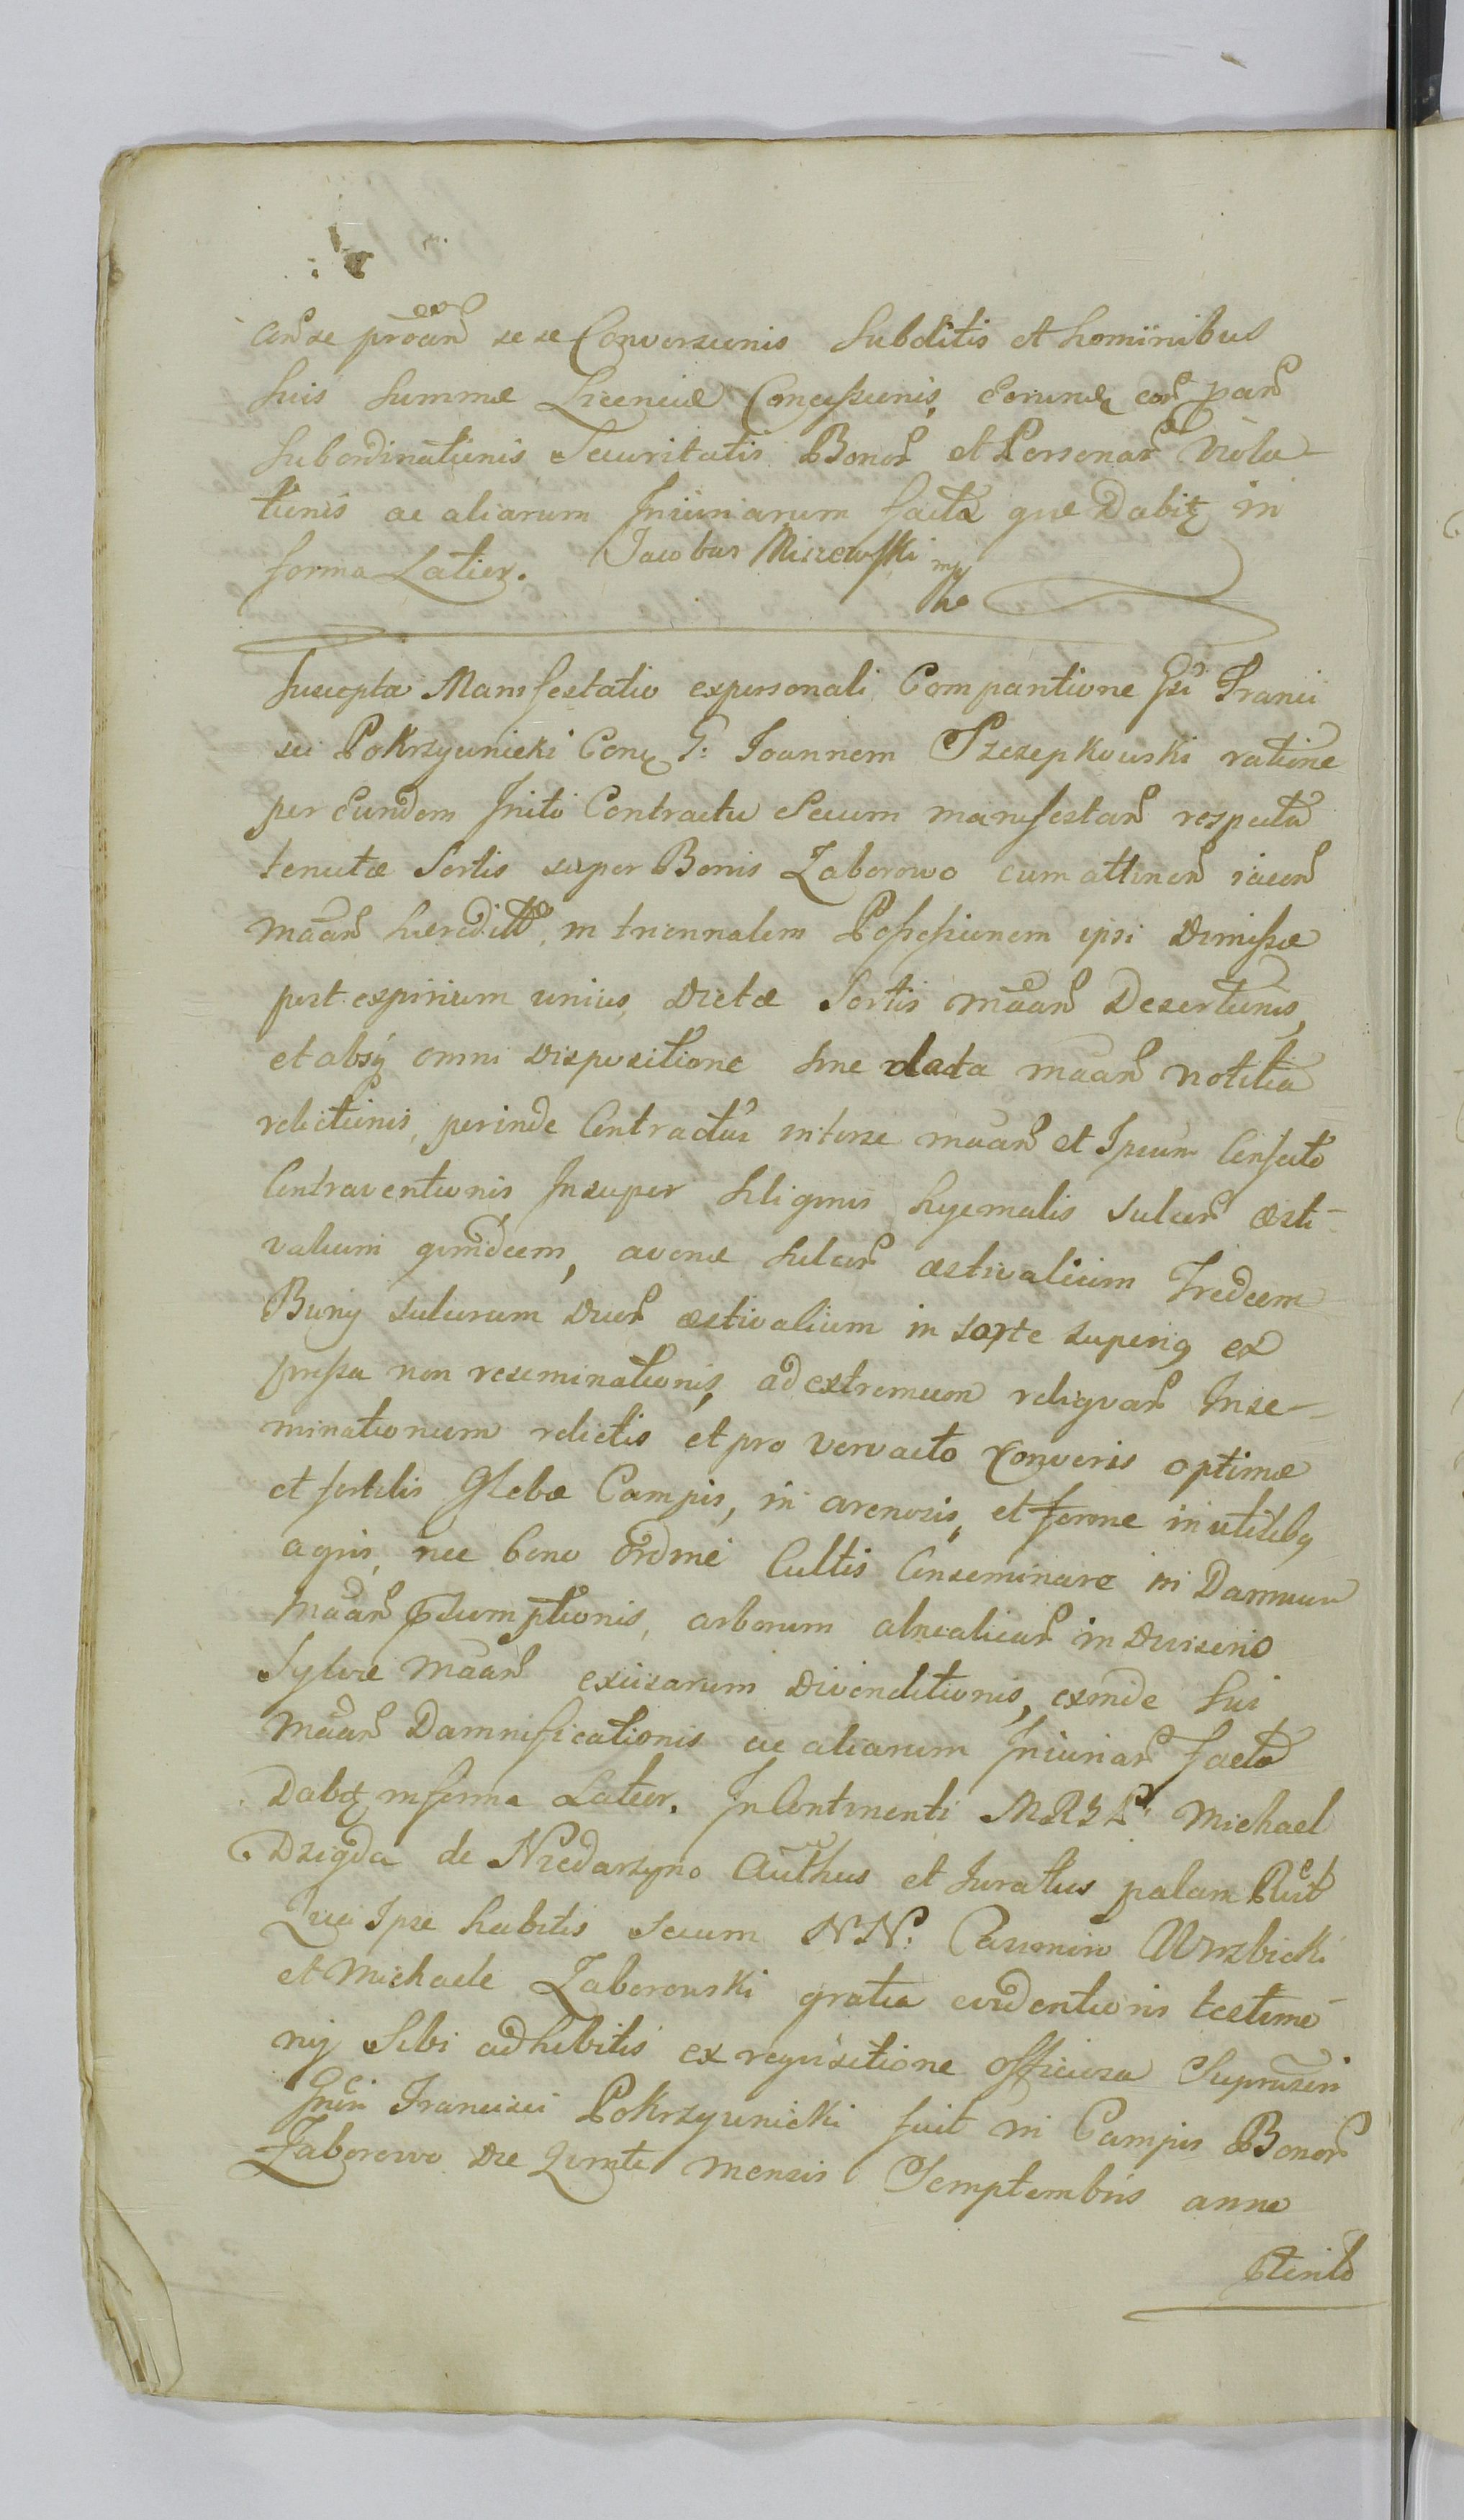 se se Conversionis Subditis et hominibus
Suis Summæ Licenciæ Concessionis,
Subordinationis Securitatis Bonor et Personar Viola-
tionis ac aliarum Iniuriarum facta quæ Dabit in
forma Latior. Jacobus Miszewski mp
Suscepta Manifestatio ex personali Comparitione Gsi Franci
sci Pokrzywnicki Con G: Joannem Szczepkowski ratione
per Eundem Initi Contractu Secum manifestan respectu
tenutæ Sortis super Bonis Zaborowo cum attinen iacen
maan hæredit in triennalem Possessionem ipsi Dimissæ
post expirium unius Dictæ Sortis maan Desertionis,
et absq omni Dispositione sine data maan notitia
relictionis, perinde Contractus inter se maan et Ipsum Confecto
Contraventionis Insuper Siliginis hyemalis sulcor æsti-
valium quindecim, avenæ sulcor æstivalium Tredecim
sulcorum Duor æstivalium in sorte superiq ex
pressa non reseminationis, ad extremum reliquar Inse-
minationum relictis et pro vervacto Conversis optimæ
et fertilis Glebæ Campis, in arenosis, et ferme inutilibq
agris, nec bono ordine Cultis Conseminare in Damnum
Maan Psumptionis, arborum
Sylvæ Maan excisarum Divenditionis, exinde Sui
Maan Damnificationis ac aliarum Iniuriar facta
Dabit in forma Latior. In Continenti MRGL Michael
Dzigda de Niedarzyno Authus et Juratus palam Rcit
Quia Ipse habitis Secum NN: Casimiro Wirzbicki
et Michaele Zaborowski gratia evidentioris testimo-
nij Sibi adhibitis ex requisitione officiosa Suprascri
Gnsi Francisci Pokrzywnicki fuit in Campis Bonor
Zaborowo Die Quinta mensis Septembris anno